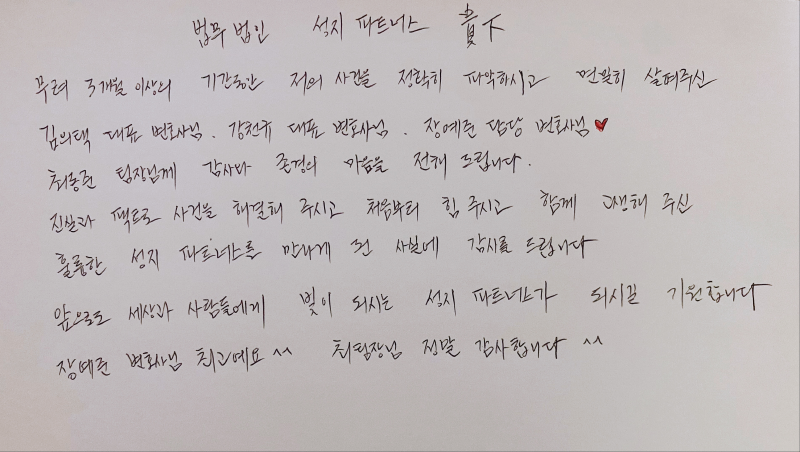 법무법인 성지 파트너스 貴下
무려 3개월 이상의 기간동안 저의 사건을 정확히 파악하시고 면밀히 살펴주신
김의택 대표 변호사님. 강천규 대표 변호사님. 장예준 담당 변호사님♥
최종준 팀장님께 감사와 존경의 마음을 전해 드립니다.
진실과 팩트로 사건을 해결해 주시고 처음부터 힘 주시고 함께 고생해 주신
훌륭한 성지 파트너스를 만나게 된 사실에 감사를 드립니다
앞으로도 세상과 사람들에게 빛이 되시는 성지 파트너스가 되시길 기원합니다
장예준 변호사님 최고예요 ^^ 최팀장님 정말 감사합니다 ^^